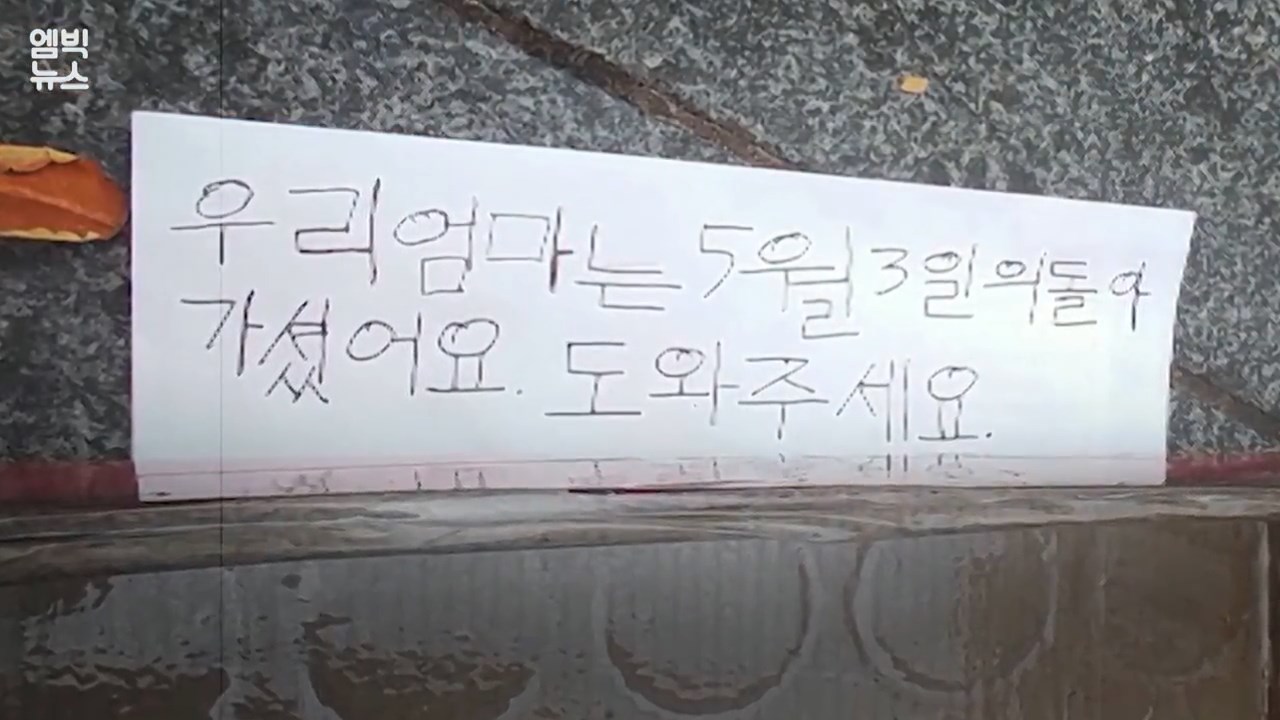 엠빅
뉴스
우리엄마는 5월3일의돌아
가셨어요. 도와주세요.